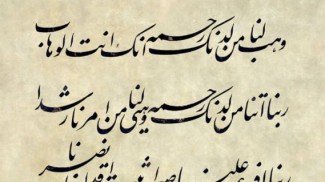 وهب لنا من لدنک رحمه انک انت الوهاب
ربنا اتنا من لدنک رحمه وهیئ لنا من امرنا رشدا
ربنا افرغ علینا صبرا و ثبت اقدامنا